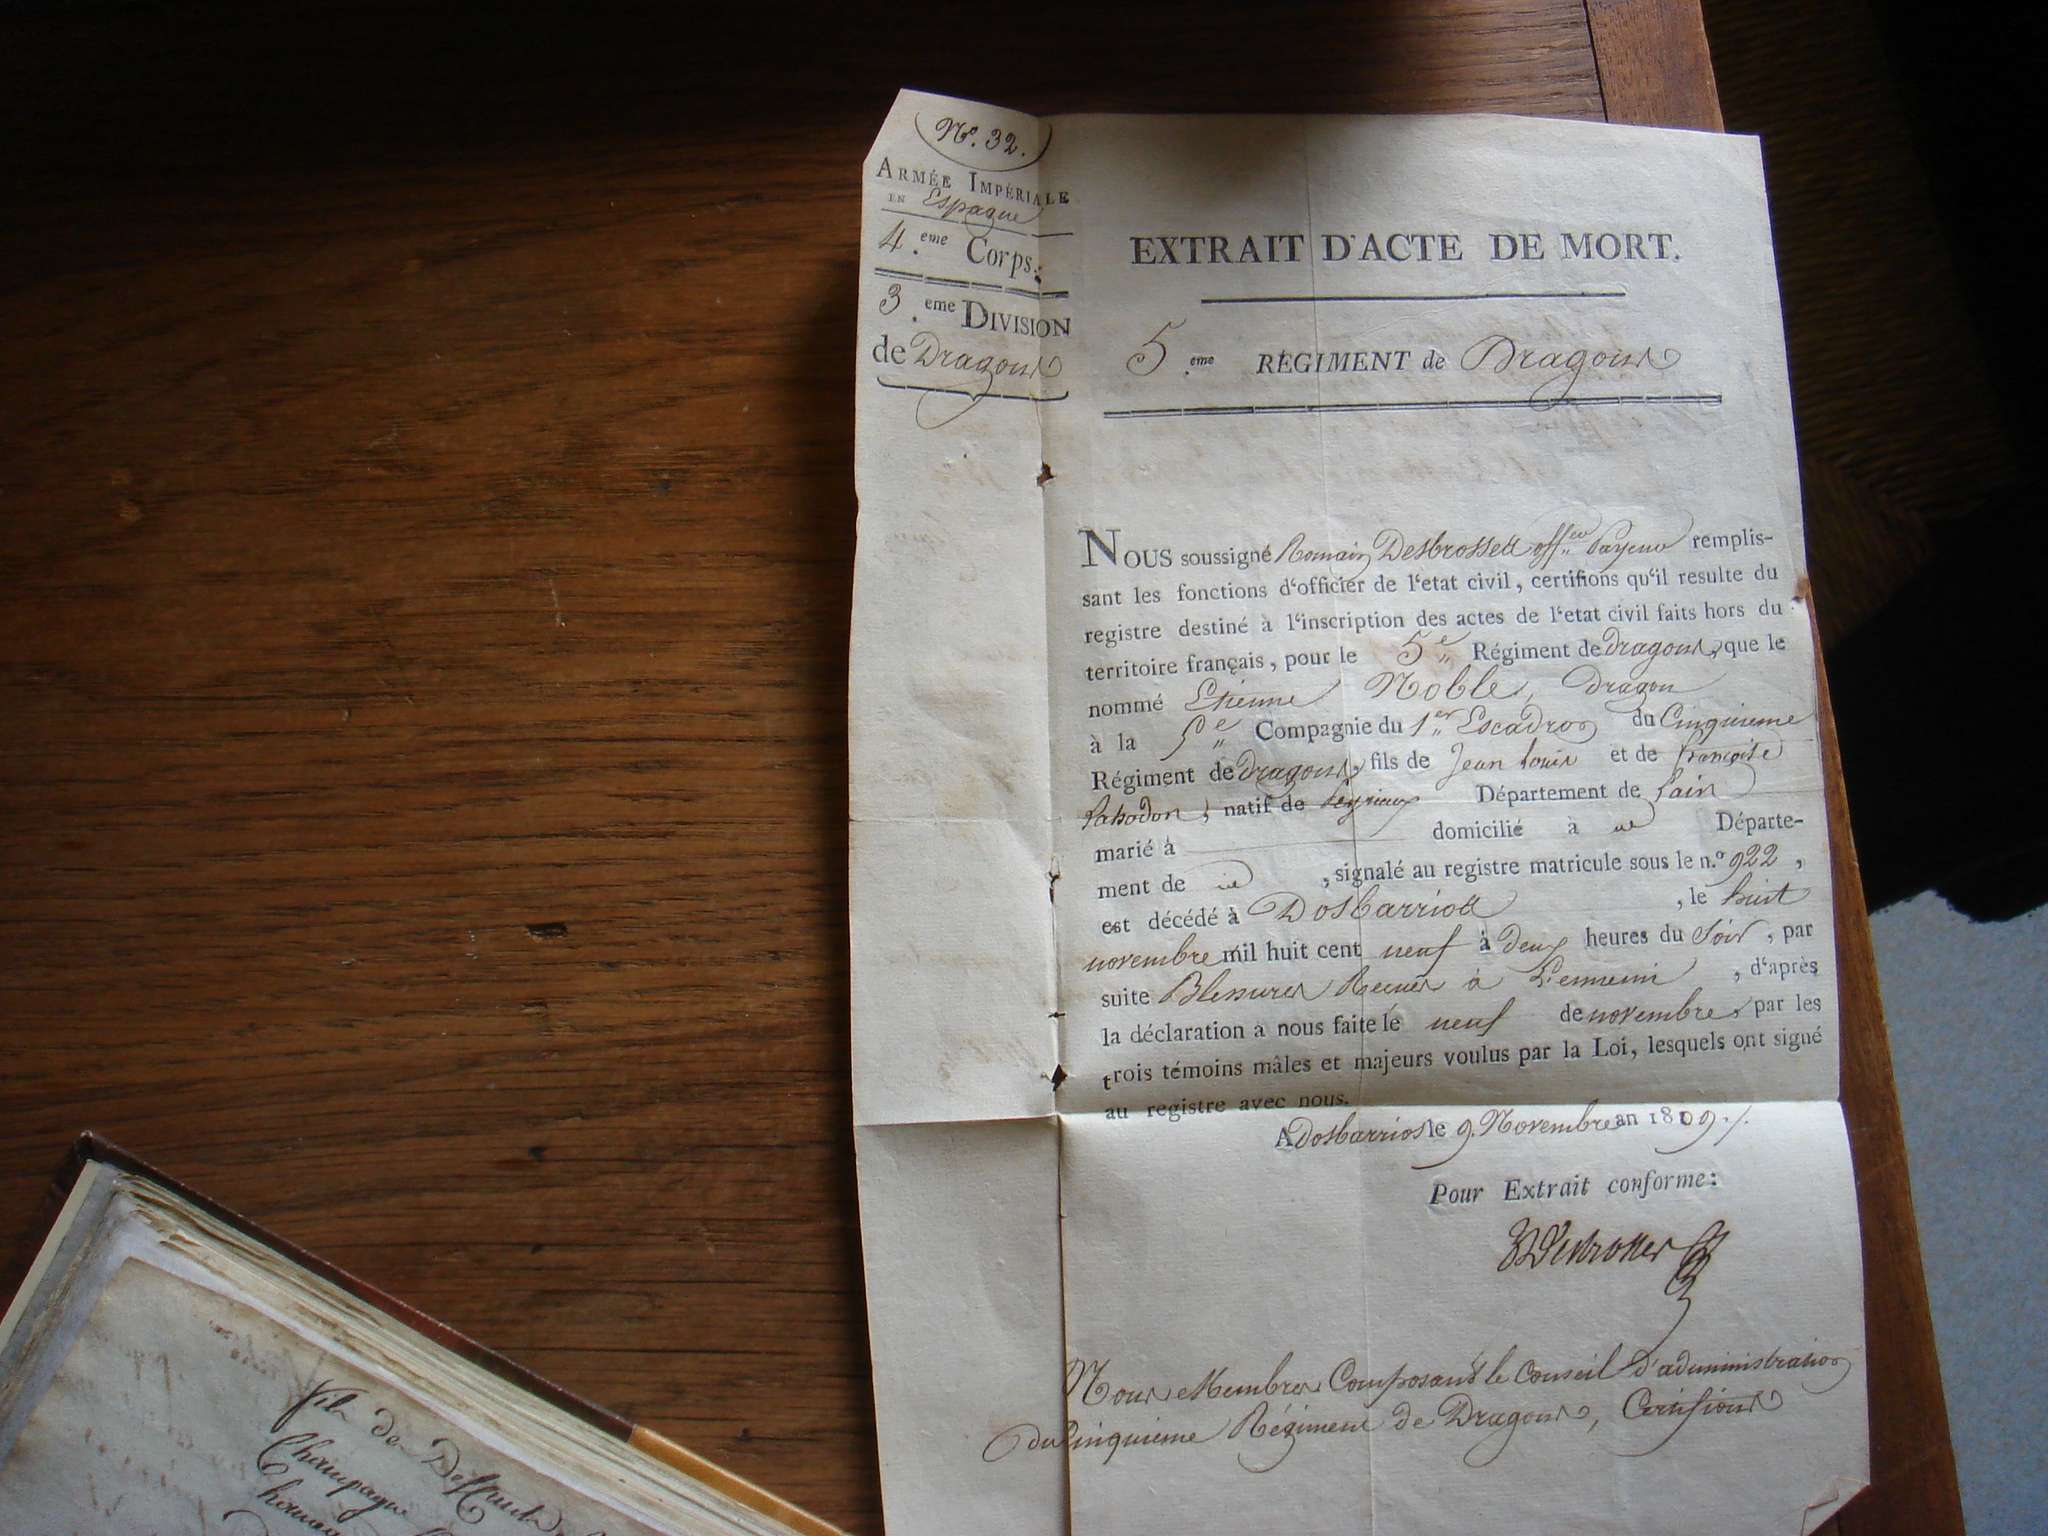 N.º 32.
ARMÉE IMPÉRIALE
EN Espagne
4.eme Corps.
3.eme DIVISION
de Dragons
EXTRAIT D'ACTE DE MORT.
5.eme RÉGIMENT de Dragons
NOUS soussigné Romain Desbrosses off.er Payeur remplis-
sant les fonctions d'officier de l'etat civil, certifions qu'il resulte du
registre destiné à l'inscription des actes de l'etat civil faits hors du
territoire français, pour le 5e Régiment de dragons, que le
nommé Etienne Noble, Dragon
à la 5e Compagnie du 1er Escadron du Cinquieme
Régiment de dragons, fils de Jean Louis et de françoise
natif de Département de Lain
marié à domicilié à id Départe-
ment de id , signalé au registre matricule sous le n.º 922 ,
est décédé à Dosbarrios , le huit
novembre mil huit cent neuf à deux heures du Soir , par
suite Blessures Recues à L'ennemi , d'après
la déclaration à nous faite le neuf de novembre, par les
trois témoins mâles et majeurs voulus par la Loi, lesquels ont signé
au registre avec nous.
A Dosbarrios le 9. Novembre an 1809./.
Pour Extrait conforme:
RDesbrosses
Nous Membres Composant le Conseil d'administration
du Cinquieme Régiment de Dragons, Certifions
fils de
Champagne